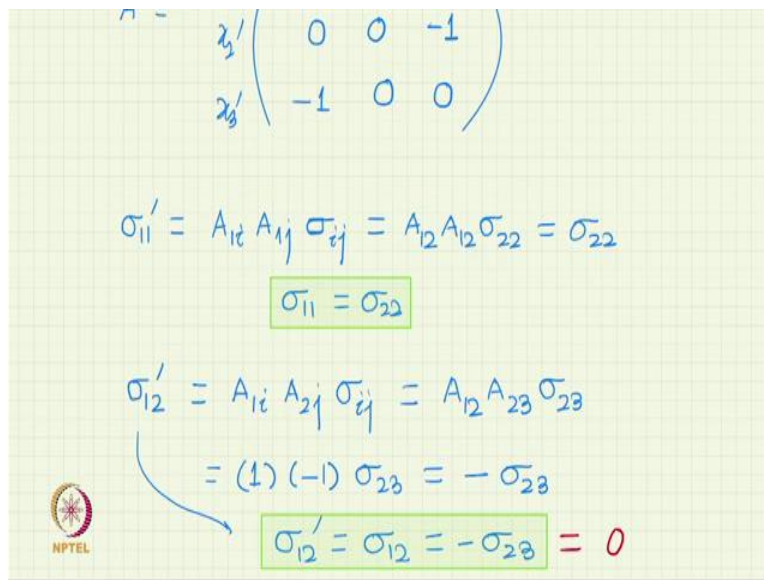 A =
x₂′ ( 0 0 -1 )
x₃′ ( -1 0 0 )
σ₁₁′ = A₁ᵢ A₁ⱼ σᵢⱼ = A₁₂ A₁₂ σ₂₂ = σ₂₂
σ₁₁ = σ₂₂
σ₁₂′ = A₁ᵢ A₂ⱼ σᵢⱼ = A₁₂ A₂₃ σ₂₃
= (1) (-1) σ₂₃ = - σ₂₃
σ₁₂′ = σ₁₂ = -σ₂₃ = 0
NPTEL